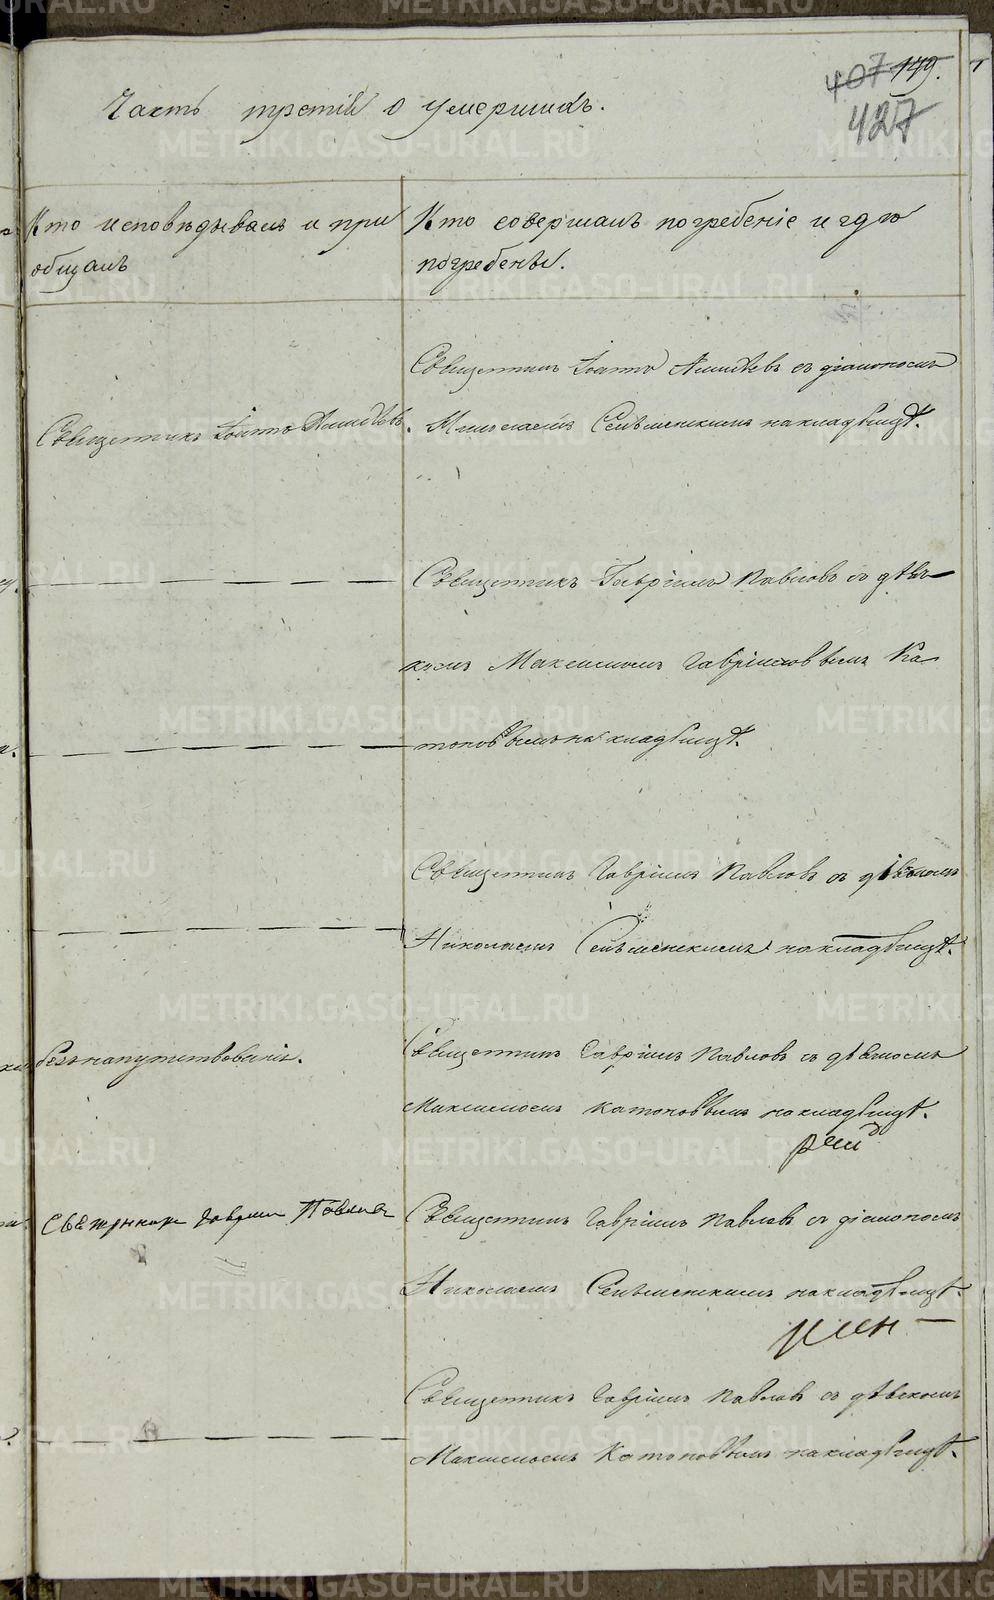 407 179.
427
Часть третія о умершихъ.
Кто исповѣдывалъ и при
общалъ
Кто совершалъ погребеніе и гдѣ
погребены.
Священникъ Іоаннъ съ діакономъ
Священникъ Іоаннъ
Николаемъ на кладбищѣ.
Священникъ Гавріилъ Павловъ съ дьяч
комъ Максимомъ Гавріиловымъ Ка
тоновымъ на кладбищѣ.
Священникъ Гавріилъ Павловъ съ діакономъ
Николаемъ на кладбищѣ.
безъ напутствованія.
Священникъ Гавріилъ Павловъ съ дьячкомъ
Максимомъ Катоновымъ на кладбищѣ.
Священникъ Гавріилъ Павловъ
Священникъ Гавріилъ Павловъ съ діакономъ
Николаемъ на кладбищѣ.
Священникъ Гавріилъ Павловъ съ дьячкомъ
Максимомъ Катоновымъ на кладбищѣ.
METRIKI.GASO-URAL.RU